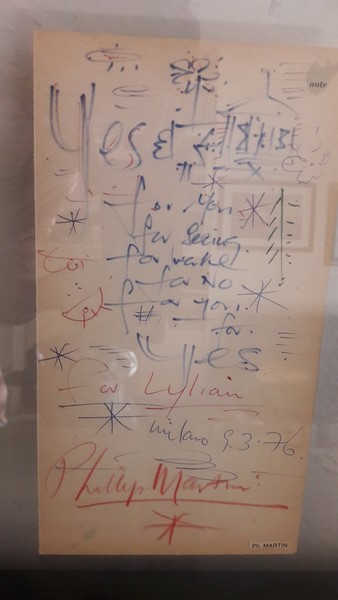 note
Yes
for you
for being
for
for No
for you,
for
Yes
for Lylian
milano 9.3.76
Phillip Martin
Ph. MARTIN